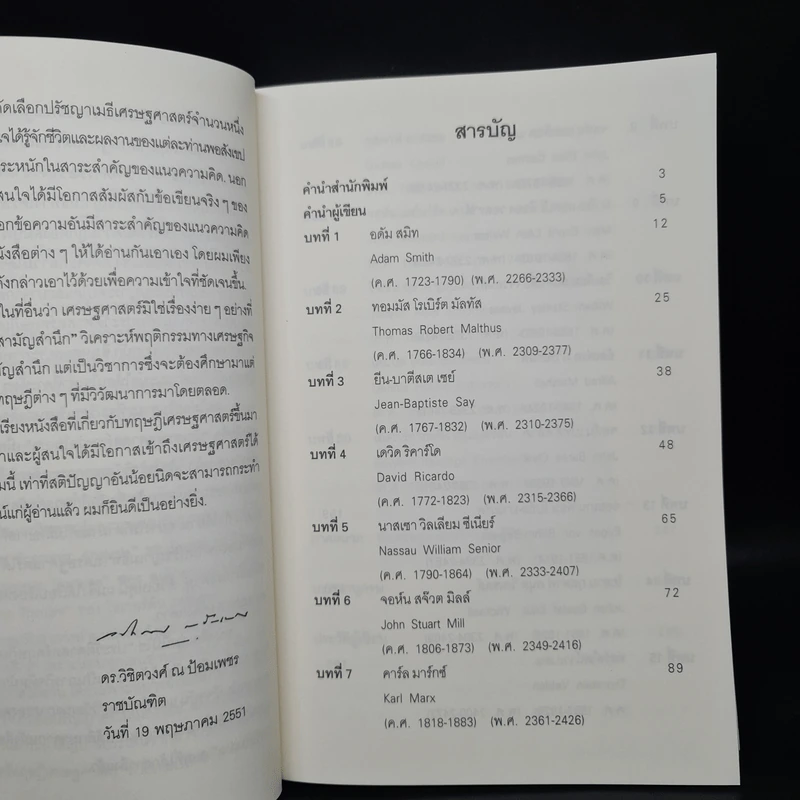 ัดเลือกปรัชญาเมธีเศรษฐศาสตร์จำนวนหนึ่ง
ใจได้รู้จักชีวิตและผลงานของแต่ละท่านพอสังเขป
ระหนักในสาระสำคัญของแนวความคิด. นอก
สนใจได้มีโอกาสสัมผัสกับข้อเขียนจริง ๆ ของ
อกข้อความอันมีสาระสำคัญของแนวความคิด
นังสือต่าง ๆ ให้ได้อ่านกันเอาเอง โดยผมเพียง
ังกล่าวเอาไว้ด้วยเพื่อความเข้าใจที่ชัดเจนขึ้น.
ในที่อื่นว่า เศรษฐศาสตร์มิใช่เรื่องง่าย ๆ อย่างที่
สามัญสำนึก" วิเคราะห์พฤติกรรมทางเศรษฐกิจ
ัญสำนึก แต่เป็นวิชาการซึ่งจะต้องศึกษามาแต่
ทฤษฎีต่าง ๆ ที่มีวิวัฒนาการมาโดยตลอด.
เรียงหนังสือที่เกี่ยวกับทฤษฎีเศรษฐศาสตร์ขึ้นมา
าและผู้สนใจได้มีโอกาสเข้าถึงเศรษฐศาสตร์ได้
มนี้ เท่าที่สติปัญญาอันน้อยนิดจะสามารถกระทำ
น์แก่ผู้อ่านแล้ว ผมก็ยินดีเป็นอย่างยิ่ง.
ดร.วิชิตวงศ์ ณ ป้อมเพชร
ราชบัณฑิต
วันที่ 19 พฤษภาคม 2551
สารบัญ
คำนำสำนักพิมพ์ 3
คำนำผู้เขียน 5
บทที่ 1 อดัม สมิท 12
Adam Smith
(ค.ศ. 1723-1790) (พ.ศ. 2266-2333)
บทที่ 2 ทอมมัส โรเบิร์ต มัลทัส 25
Thomas Robert Malthus
(ค.ศ. 1766-1834) (พ.ศ. 2309-2377)
บทที่ 3 ยีน-บาตีสเต เซย์ 38
Jean-Baptiste Say
(ค.ศ. 1767-1832) (พ.ศ. 2310-2375)
บทที่ 4 เดวิด ริคาร์โด 48
David Ricardo
(ค.ศ. 1772-1823) (พ.ศ. 2315-2366)
บทที่ 5 นาสเซา วิลเลียม ซีเนียร์ 65
Nassau William Senior
(ค.ศ. 1790-1864) (พ.ศ. 2333-2407)
บทที่ 6 จอห์น สจ๊วต มิลล์ 72
John Stuart Mill
(ค.ศ. 1806-1873) (พ.ศ. 2349-2416)
บทที่ 7 คาร์ล มาร์กซ์ 89
Karl Marx
(ค.ศ. 1818-1883) (พ.ศ. 2361-2426)